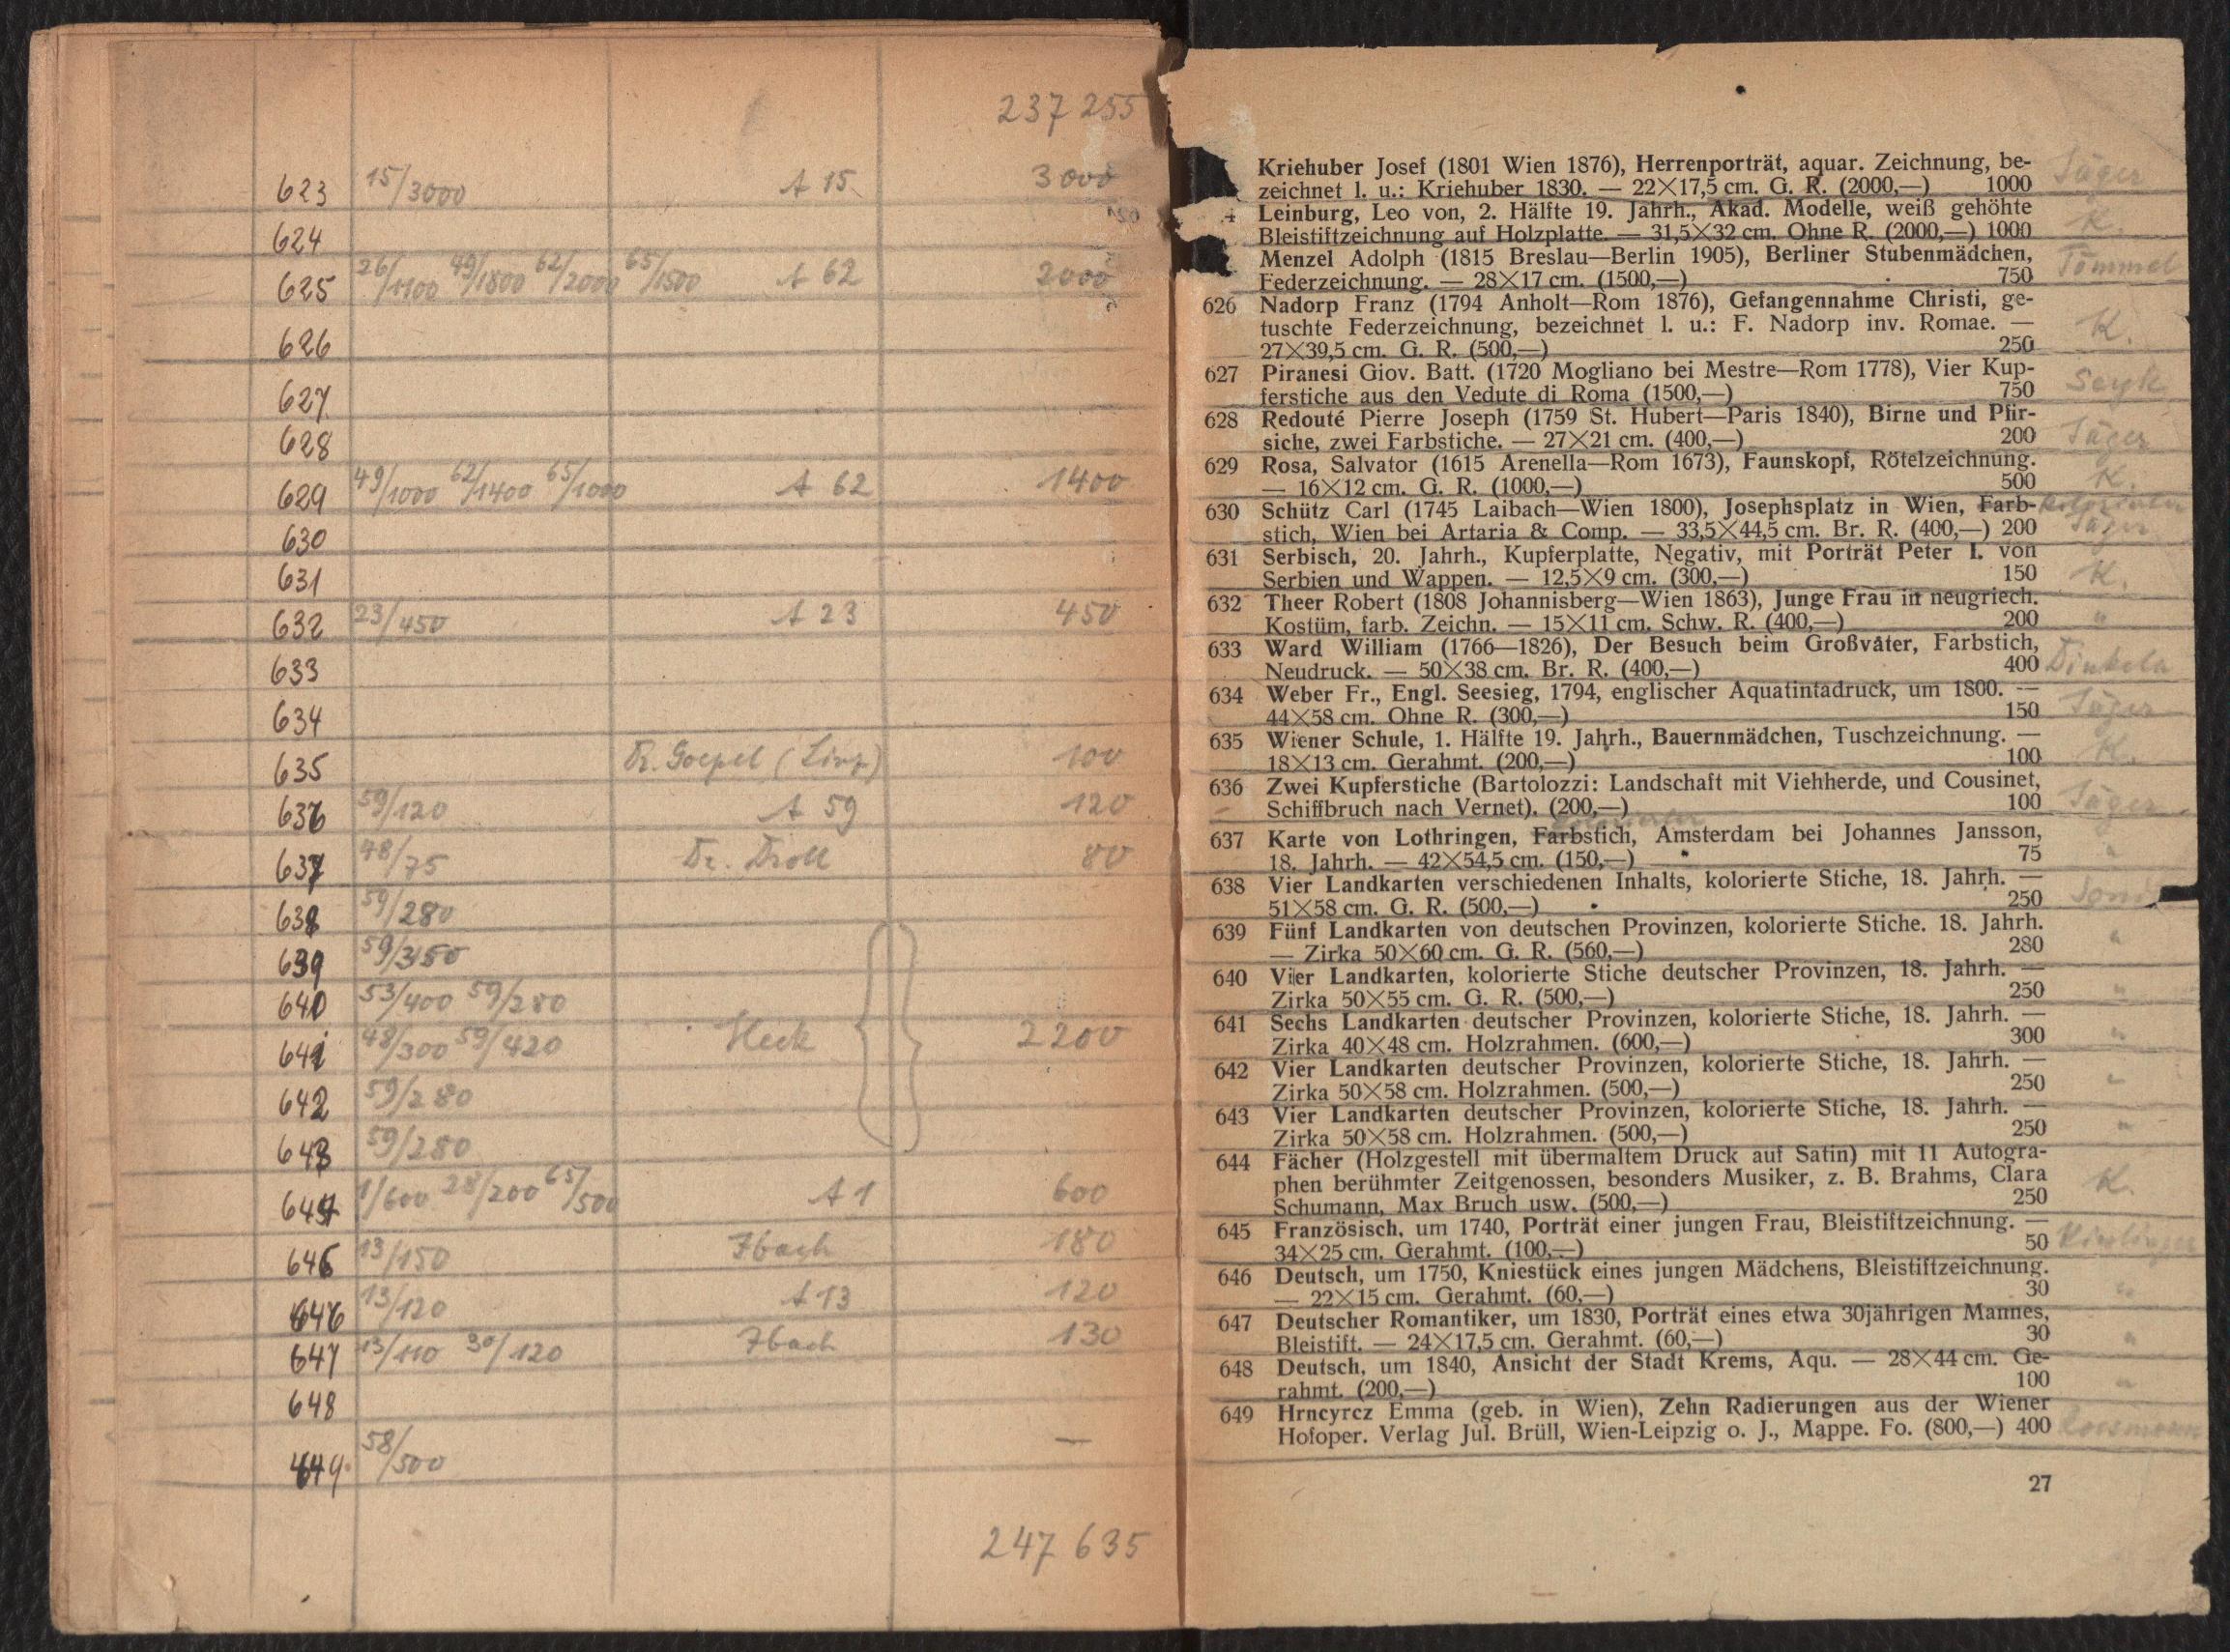 237 255
623 15/3000 A 15 3000
624
625 26/1100 49/1800 62/2000 65/1500 A 62 2000
626
627
628
629 49/1000 62/1400 65/1000 A 62 1400
630
631
632 23/450 A 23 450
633
634
635 Dr. Goepel (Linz) 100
636 59/120 A 59 120
637 48/75 Dr. Droll 80
638 59/280
639 59/350
640 53/400 59/280
641 48/300 59/420 Heck 2200
642 59/280
643 59/280
644 1/600 28/200 65/500 A 1 600
645 13/150 Ibach 180
646 13/120 A 13 120
647 13/110 30/120 Ibach 130
648
649 58/500 —
247 635
Kriehuber Josef (1801 Wien 1876), Herrenporträt, aquar. Zeichnung, be- Jäger
zeichnet l. u.: Kriehuber 1830. — 22×17,5 cm. G. R. (2000,—) 1000
4 Leinburg, Leo von, 2. Hälfte 19. Jahrh., Akad. Modelle, weiß gehöhte K.
Bleistiftzeichnung auf Holzplatte. — 31,5×32 cm. Ohne R. (2000,—) 1000
Menzel Adolph (1815 Breslau—Berlin 1905), Berliner Stubenmädchen, Tömmel
Federzeichnung. — 28×17 cm. (1500,—) 750
626 Nadorp Franz (1794 Anholt—Rom 1876), Gefangennahme Christi, ge-
tuschte Federzeichnung, bezeichnet l. u.: F. Nadorp inv. Romae. — K.
27×39,5 cm. G. R. (500,—) 250
627 Piranesi Giov. Batt. (1720 Mogliano bei Mestre—Rom 1778), Vier Kup-
ferstiche aus den Vedute di Roma (1500,—) 750
628 Redouté Pierre Joseph (1759 St. Hubert—Paris 1840), Birne und Pfir-
siche, zwei Farbstiche. — 27×21 cm. (400,—) 200 Jäger
629 Rosa, Salvator (1615 Arenella—Rom 1673), Faunskopf, Rötelzeichnung.
— 16×12 cm. G. R. (1000,—) 500 K.
630 Schütz Carl (1745 Laibach—Wien 1800), Josephsplatz in Wien, Farb- kolorierter
stich, Wien bei Artaria & Comp. — 33,5×44,5 cm. Br. R. (400,—) 200 Jäger
631 Serbisch, 20. Jahrh., Kupferplatte, Negativ, mit Porträt Peter I. von
Serbien und Wappen. — 12,5×9 cm. (300,—) 150 K.
632 Theer Robert (1808 Johannisberg—Wien 1863), Junge Frau in neugriech.
Kostüm, farb. Zeichn. — 15×11 cm. Schw. R. (400,—) 200 "
633 Ward William (1766—1826), Der Besuch beim Großvater, Farbstich,
Neudruck. — 50×38 cm. Br. R. (400,—) 400
634 Weber Fr., Engl. Seesieg, 1794, englischer Aquatintadruck, um 1800. —
44×58 cm. Ohne R. (300,—) 150 Jäger
635 Wiener Schule, 1. Hälfte 19. Jahrh., Bauernmädchen, Tuschzeichnung. —
18×13 cm. Gerahmt. (200,—) 100 K.
636 Zwei Kupferstiche (Bartolozzi: Landschaft mit Viehherde, und Cousinet,
Schiffbruch nach Vernet). (200,—) 100 Jäger
637 Karte von Lothringen, Farbstich, Amsterdam bei Johannes Jansson,
18. Jahrh. — 42×54,5 cm. (150,—) 75 "
638 Vier Landkarten verschiedenen Inhalts, kolorierte Stiche, 18. Jahrh. —
51×58 cm. G. R. (500,—) 250
639 Fünf Landkarten von deutschen Provinzen, kolorierte Stiche. 18. Jahrh.
— Zirka 50×60 cm. G. R. (560,—) 280 "
640 Vier Landkarten, kolorierte Stiche deutscher Provinzen, 18. Jahrh. —
Zirka 50×55 cm. G. R. (500,—) 250 "
641 Sechs Landkarten deutscher Provinzen, kolorierte Stiche, 18. Jahrh. —
Zirka 40×48 cm. Holzrahmen. (600,—) 300 "
642 Vier Landkarten deutscher Provinzen, kolorierte Stiche, 18. Jahrh. —
Zirka 50×58 cm. Holzrahmen. (500,—) 250 "
643 Vier Landkarten deutscher Provinzen, kolorierte Stiche, 18. Jahrh. —
Zirka 50×58 cm. Holzrahmen. (500,—) 250 "
644 Fächer (Holzgestell mit übermaltem Druck auf Satin) mit 11 Autogra-
phen berühmter Zeitgenossen, besonders Musiker, z. B. Brahms, Clara K.
Schumann, Max Bruch usw. (500,—) 250
645 Französisch, um 1740, Porträt einer jungen Frau, Bleistiftzeichnung. —
34×25 cm. Gerahmt. (100,—) 50
646 Deutsch, um 1750, Kniestück eines jungen Mädchens, Bleistiftzeichnung.
— 22×15 cm. Gerahmt. (60,—) 30 "
647 Deutscher Romantiker, um 1830, Porträt eines etwa 30jährigen Mannes,
Bleistift. — 24×17,5 cm. Gerahmt. (60,—) 30 "
648 Deutsch, um 1840, Ansicht der Stadt Krems, Aqu. — 28×44 cm. Ge-
rahmt. (200,—) 100 "
649 Hrncyrcz Emma (geb. in Wien), Zehn Radierungen aus der Wiener
Hofoper. Verlag Jul. Brüll, Wien-Leipzig o. J., Mappe. Fo. (800,—) 400
27